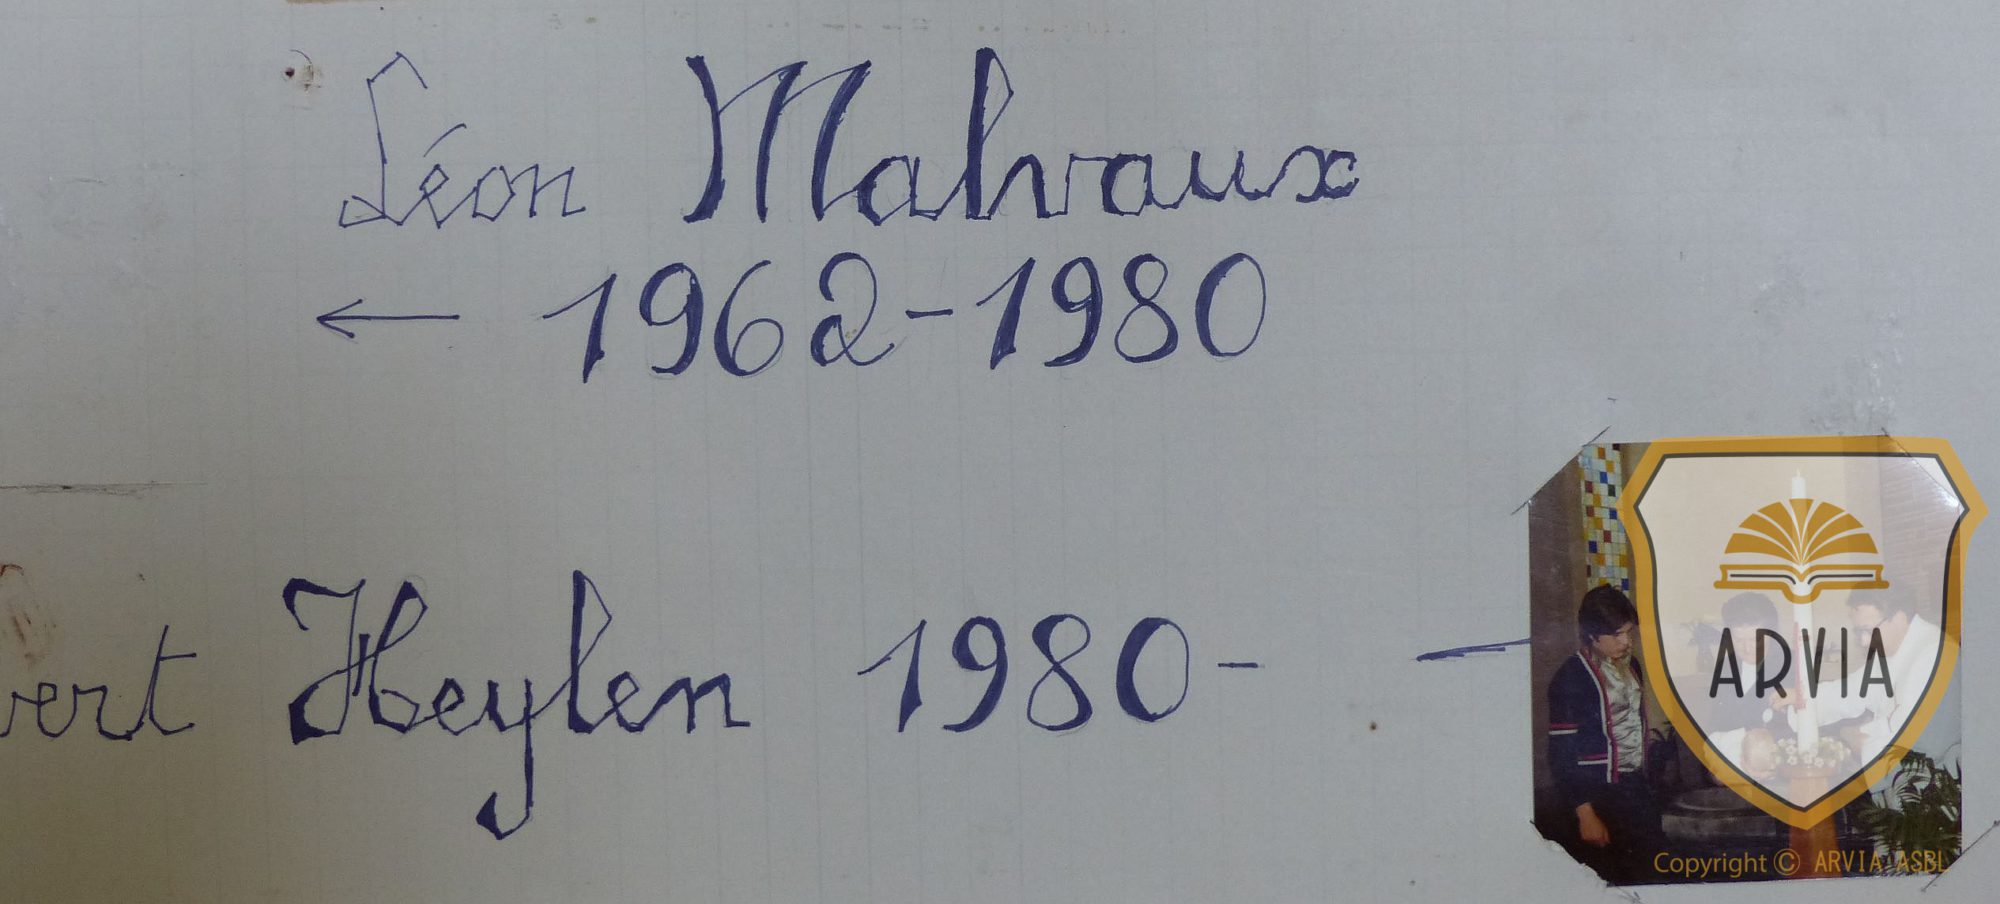 Léon Malvaux
← 1962-1980
vert Heylen 1980-
ARVIA
Copyright © ARVIA ASBL